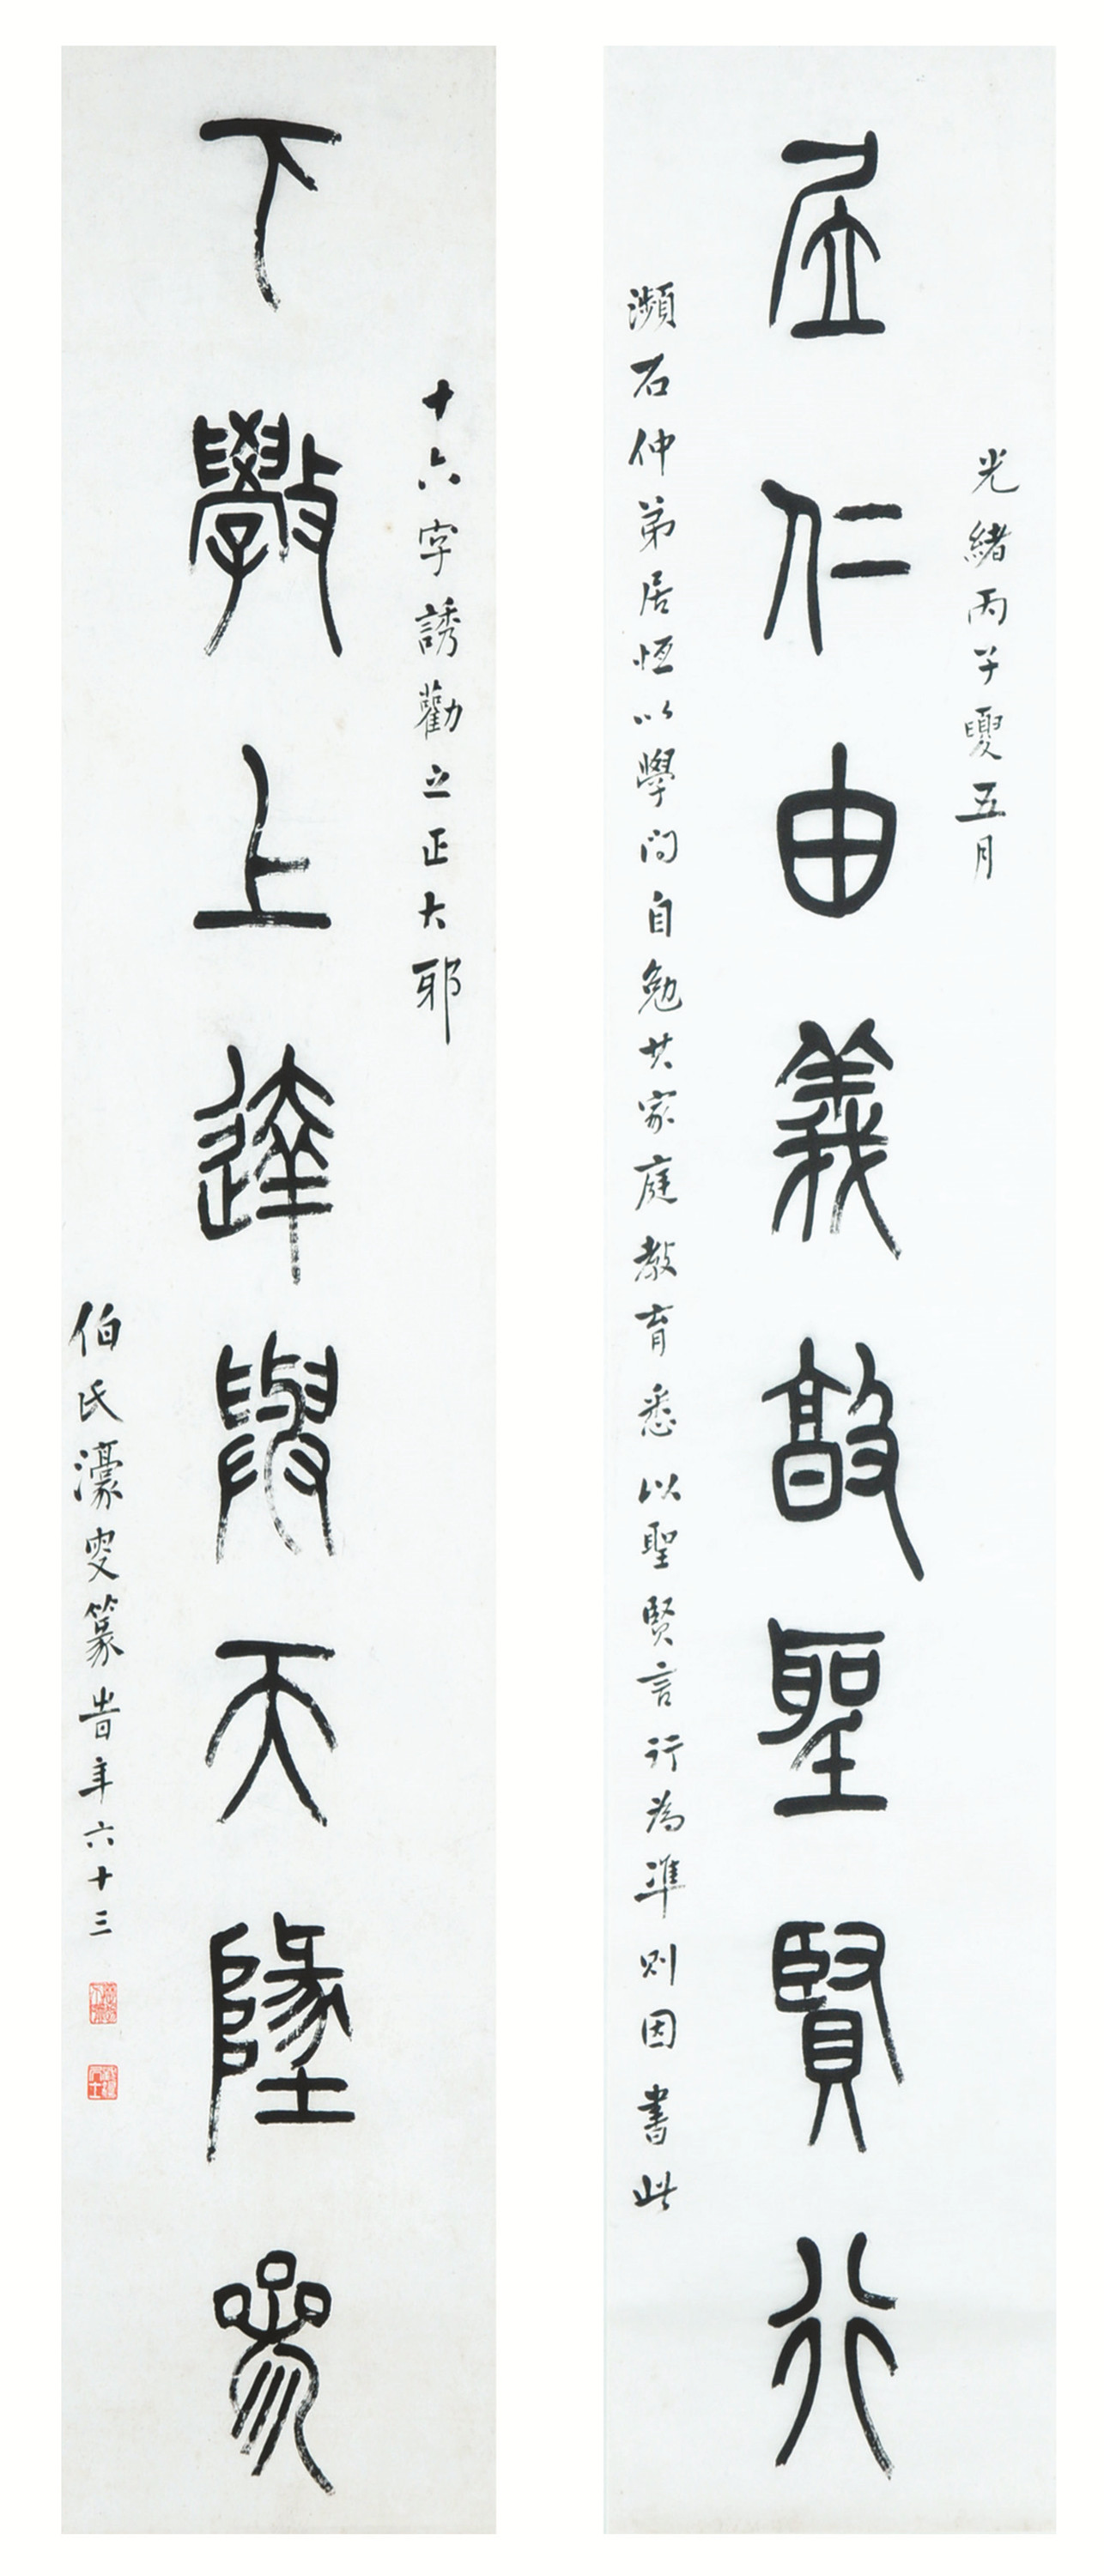 光緒丙子夓五月
㞐仁由義敦聖賢行
瀕石仲弟居恆以學問自勉其家庭教育悉以聖賢言行為準則因書此
十六字誘勸之正大耶
下斆上達與天地參
伯氏濠叟篆昔年六十三